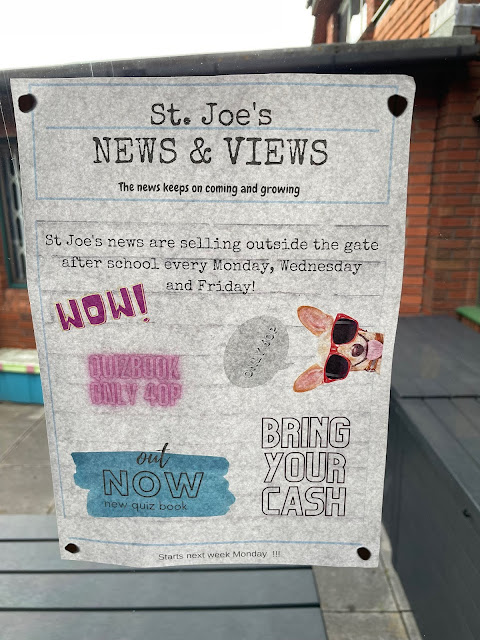 St. Joe's
NEWS & VIEWS
The news keeps on coming and growing
St Joe's news are selling outside the gate
after school every Monday, Wednesday
and Friday!
WOW!
QUIZBOOK
ONLY 40P
ONLY 40P
out
NOW
new quiz book
BRING
YOUR
CASH
Starts next week Monday !!!